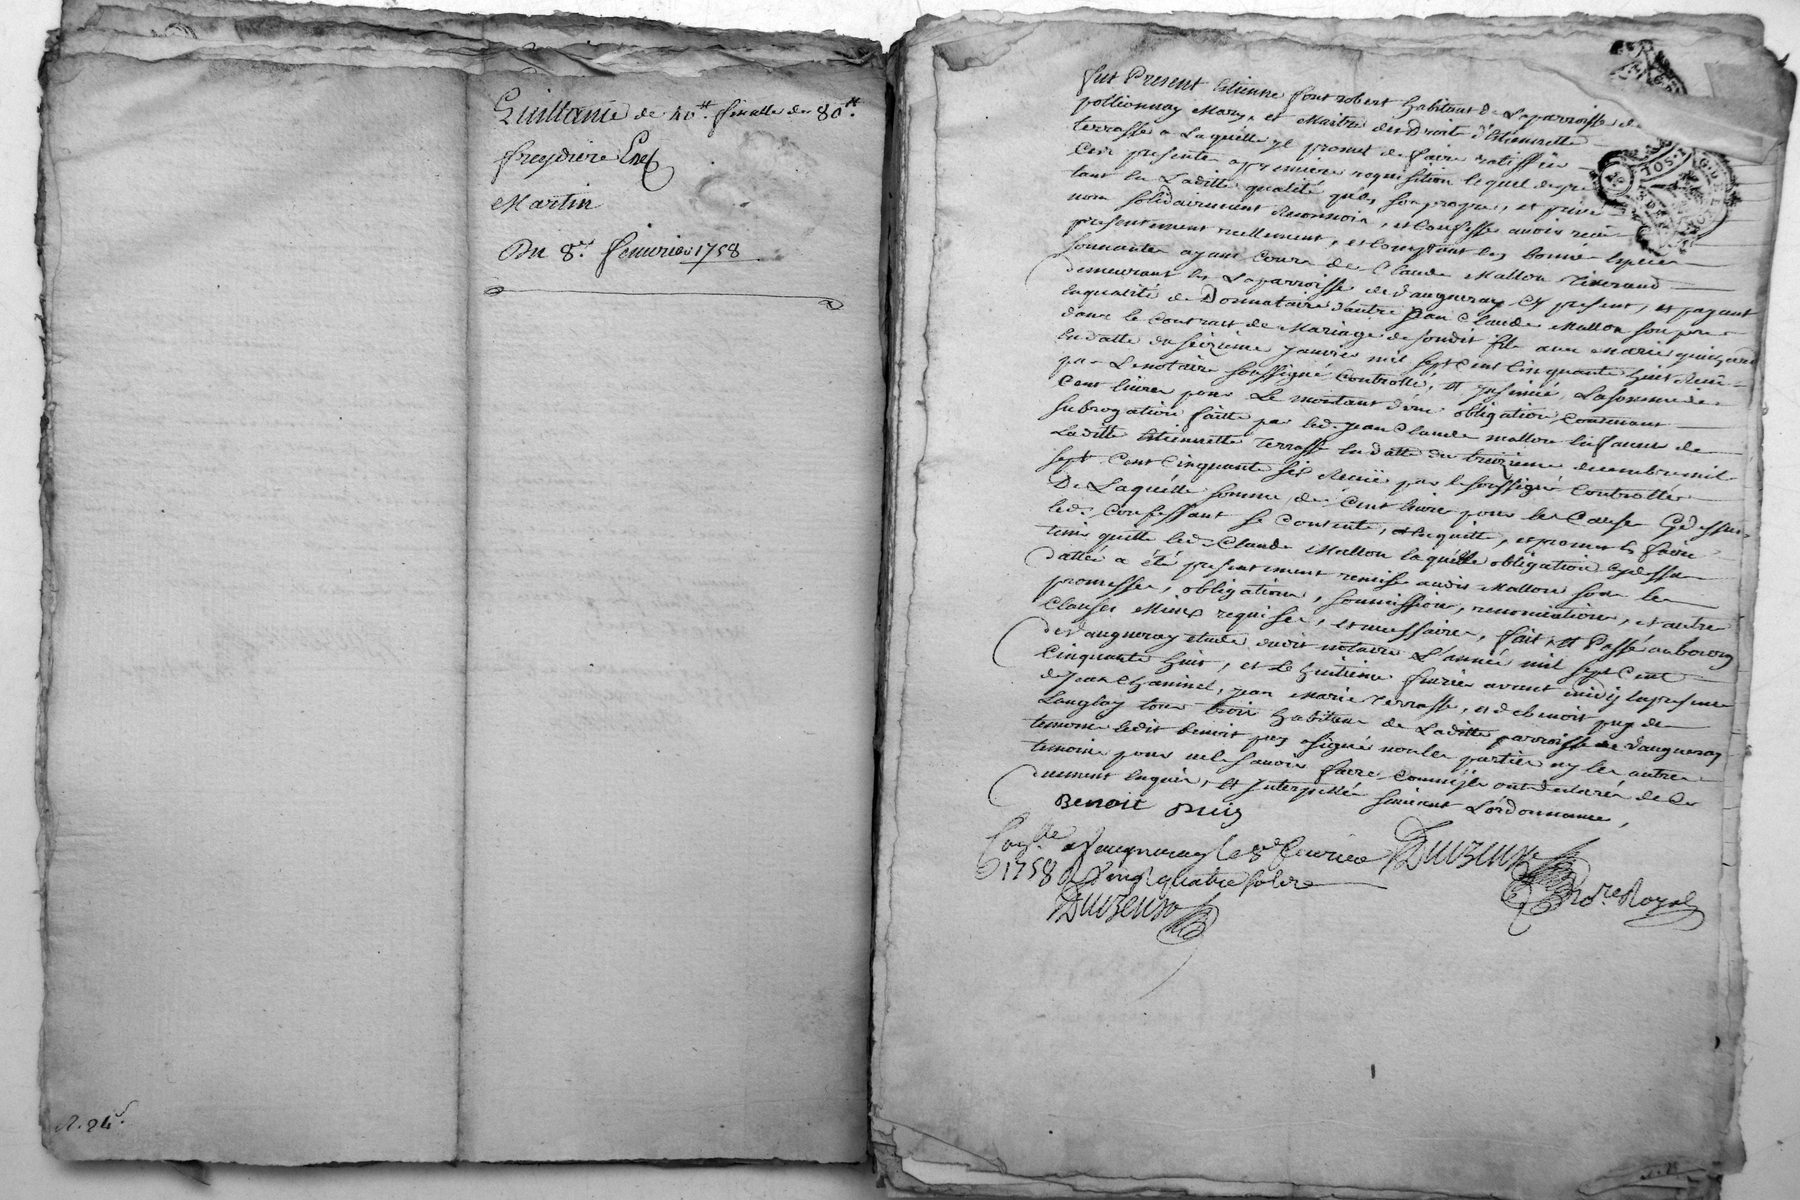 Quittance de 40ᵗᵗ finalle de 80ᵗᵗ
freydiere
Martin
Du 8ᵉ. feuvrier 1758
R. 24ˢ.
fut Present Etienne font robert habitant de La parroisse de
pollionnay Mary, et Maitre des Droits d'Etiennette
terrasse a Laquelle jl promet de faire ratiffier
Ces presentes a premiere requisition lequel de gré
tant en Laditte qualité qu'en son propre, et privé
nom solidairement Reconnoit, et Confesse avoir receu
presentement reellement, et Comptant en bonnes Especes
sonnantes ayant Cours de Claude Mallon Tisserand
demeurant en La parroisse de Vaugneray Cy present, et payant
en qualité de Donnataire d'autre Jean Claude Mallon son pere
dans le Contrat de Mariage de sondit fils avec Marie
en datte du seizieme Janvier mil sept Cent Cinquante huit Receu
par Le notaire soussigné Controllé, et Jnsinué, La somme de
Cent livres pour Le montant d'une obligation Contenant
subrogation faitte par led. Jean Claude mallon en faveur de
Laditte Etiennette Terrasse en datte du treizieme decembre mil
sept Cent Cinquante six Receüe par le soussigné Controllée
De Laquelle somme de Cent livres pour les Causes Cy dessus
led. Confessant se Contente, et en quitte, et promet en faire
tenir quitte led. Claude Mallon laquelle obligation Cy dessus
dattée a été presentement remise audit Mallon sous les
promesses, obligations, soumissions, renonciations, et autres
Clauses Mieux requises, et necessaires, fait et Passé au bourg
de Vaugneray etude dudit notaire L'année mil sept Cent
Cinquante huit, et Le huitieme fevrier avant midy En presence
de Jean Chaninel, Jean Marie Terrasse, et de benoit puy de
Langlay tous trois habitans de Laditte parroisse de Vaugneray
temoins ledit benoit puy a signé non les parties ny les autres
temoins pour ne le savoir faire Comme jls ont declarés de Ce
duement Enquis, et Jnterpellés suivant L'ordonnance,
Benoit Puis
Con.ˡˡᵉ a Vaugneray le 8ᵉ fevrier
1758 R. Vingt quatre sols
No.ʳᵉ Royal